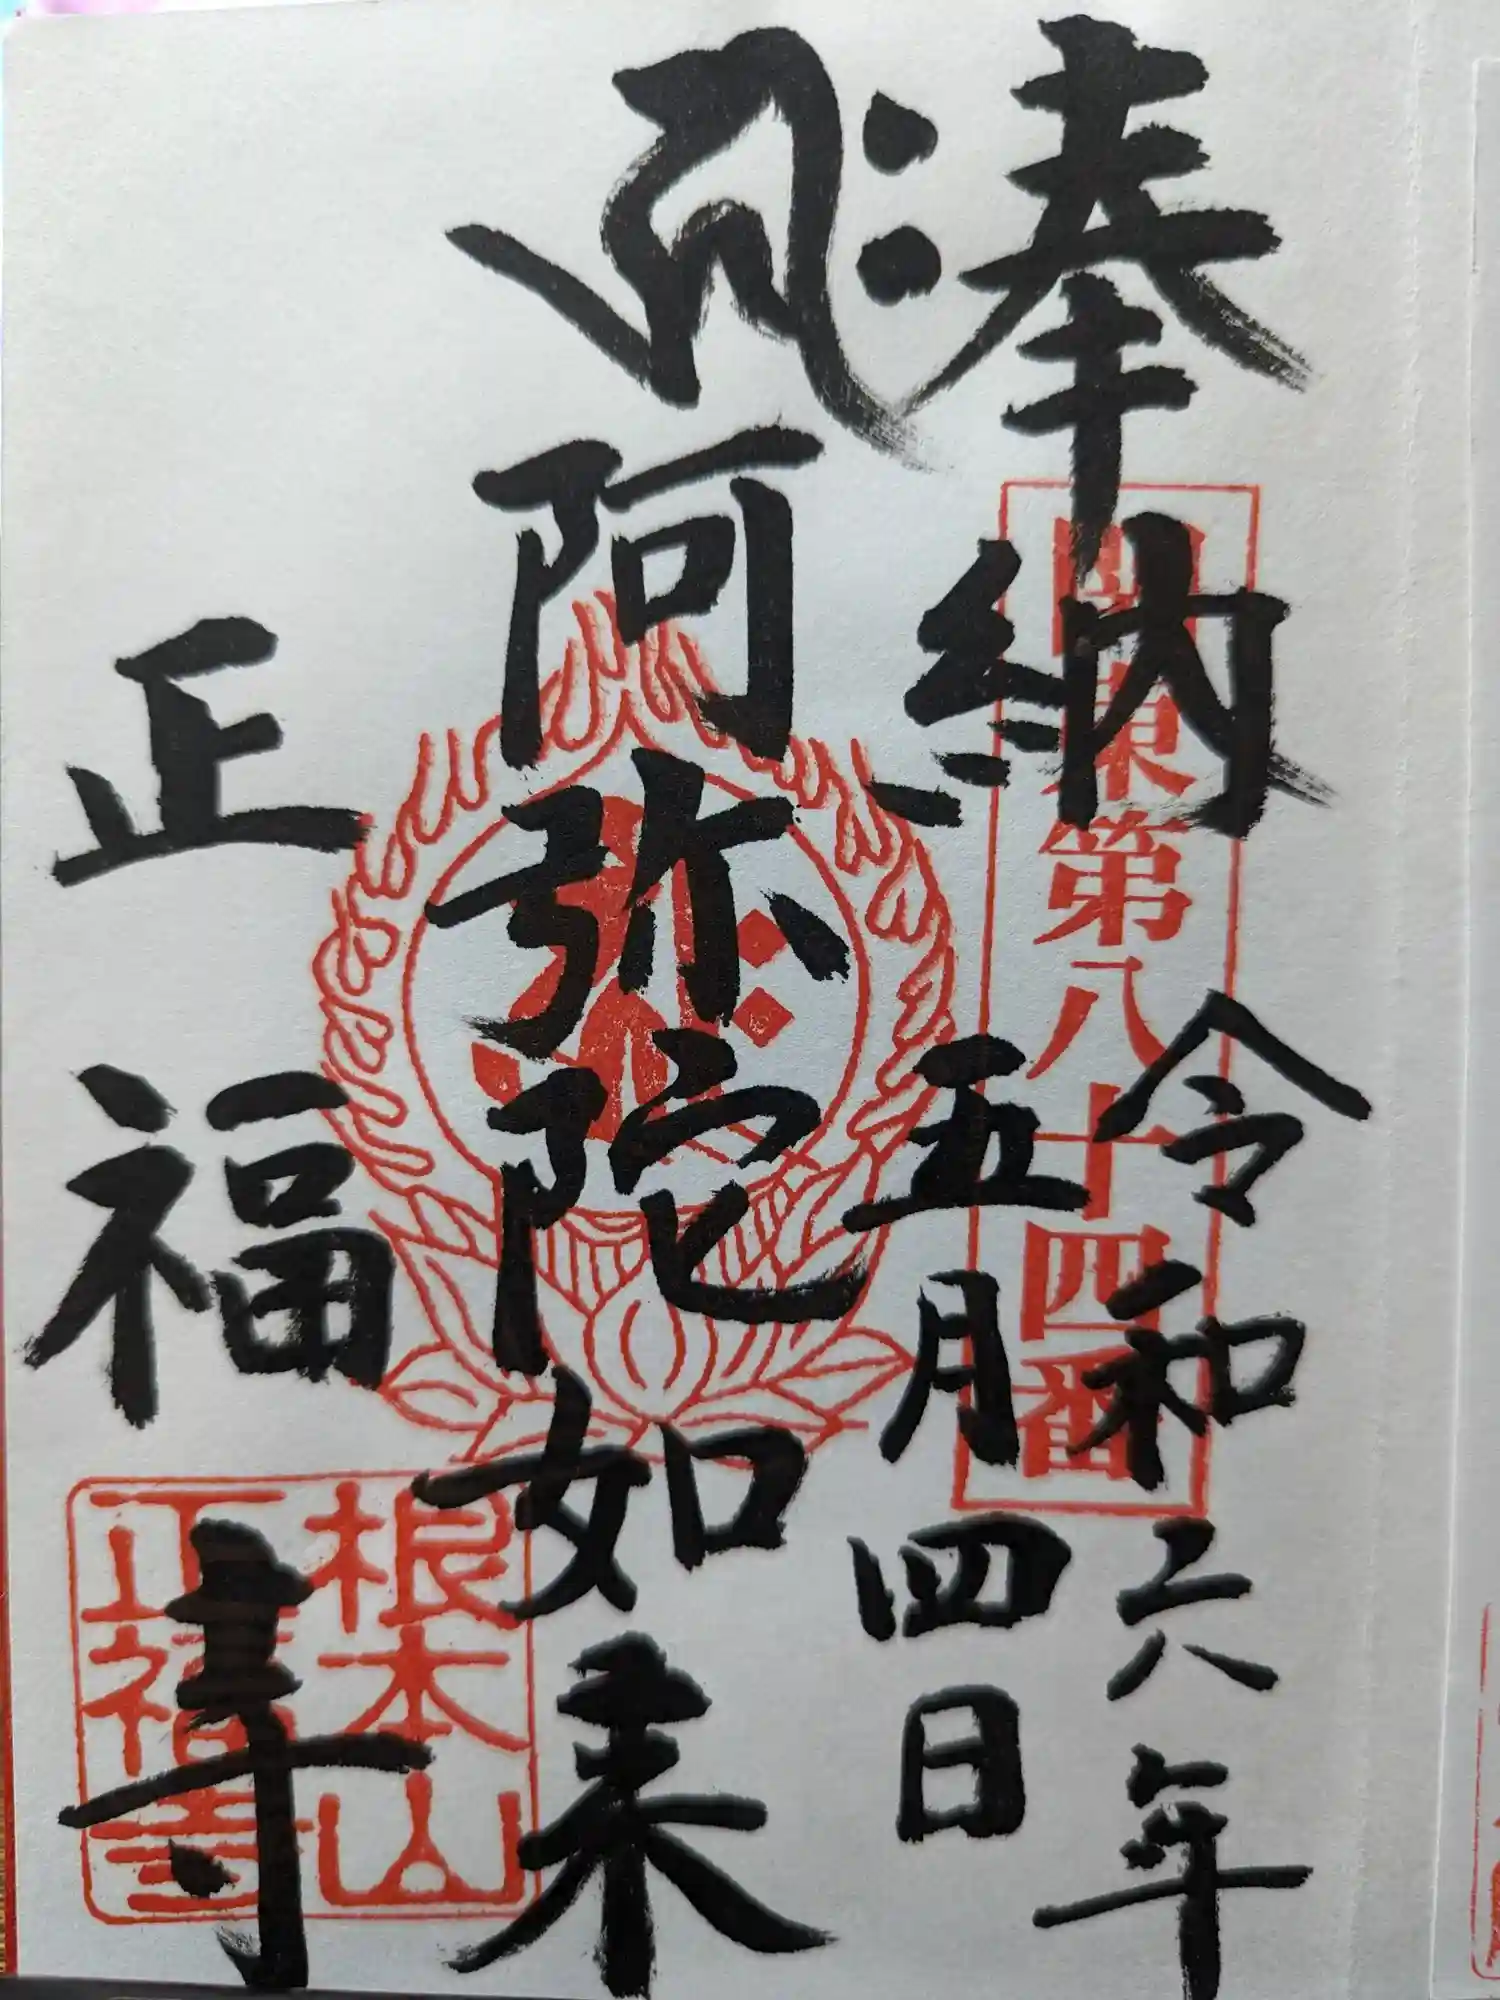 奉納
関東第八十四番
令和六年
五月四日
𑖮𑖿𑖨𑖱𑖾
阿弥陀如来
正福寺
根本山
正福寺